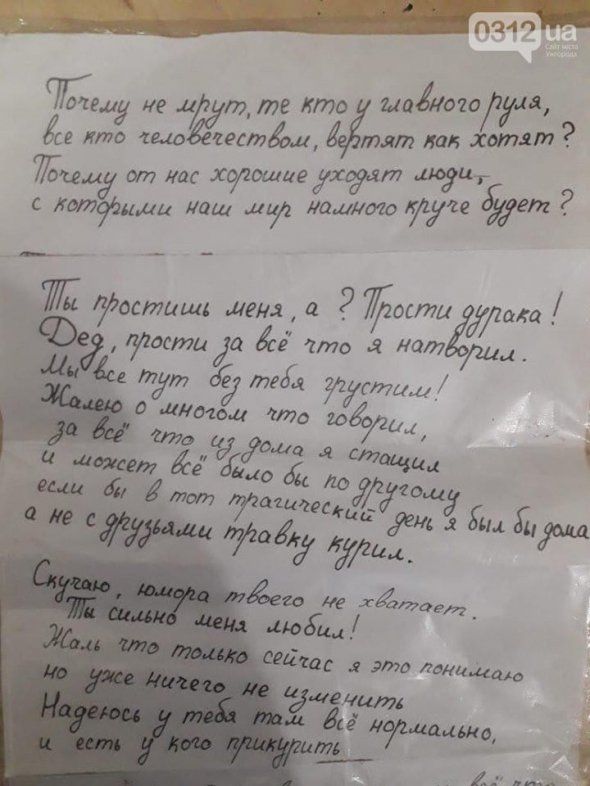 0312 ua
Сайт міста
Ужгорода
Почему не мрут, те кто у главного руля,
все кто человечеством, вертят как хотят?
Почему от нас хорошие уходят люди,
с которыми наш мир намного круче будет?
Ты простишь меня, а? Прости дурака!
Дед, прости за всё что я натворил.
Мы все тут без тебя грустим!
Жалею о многом что говорил,
за всё что из дома я стащил
и может всё было бы по другому
если бы в тот трагический день я был бы дома
а не с друзьями травку курил.
Скучаю, юмора твоего не хватает.
Ты сильно меня любил!
Жаль что только сейчас я это понимаю
но уже ничего не изменить
Надеюсь у тебя там всё нормально,
и есть у кого прикурить